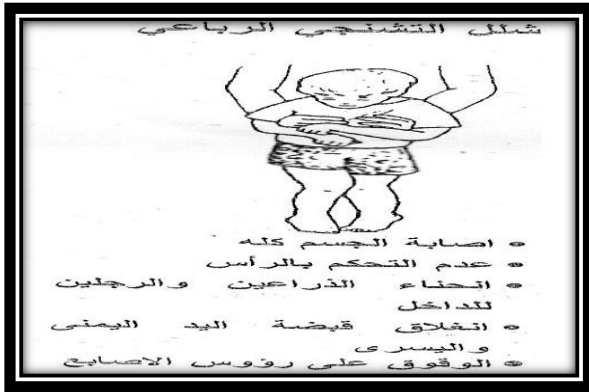 شلل التشنجي الرباعي
• اصابة الجسم كله
• عدم التحكم بالرأس
• انحناء الذراعين والرجلين
للداخل
• انغلاق قبضة اليد اليمنى
واليسرى
• الوقوق على رؤوس الاصابع